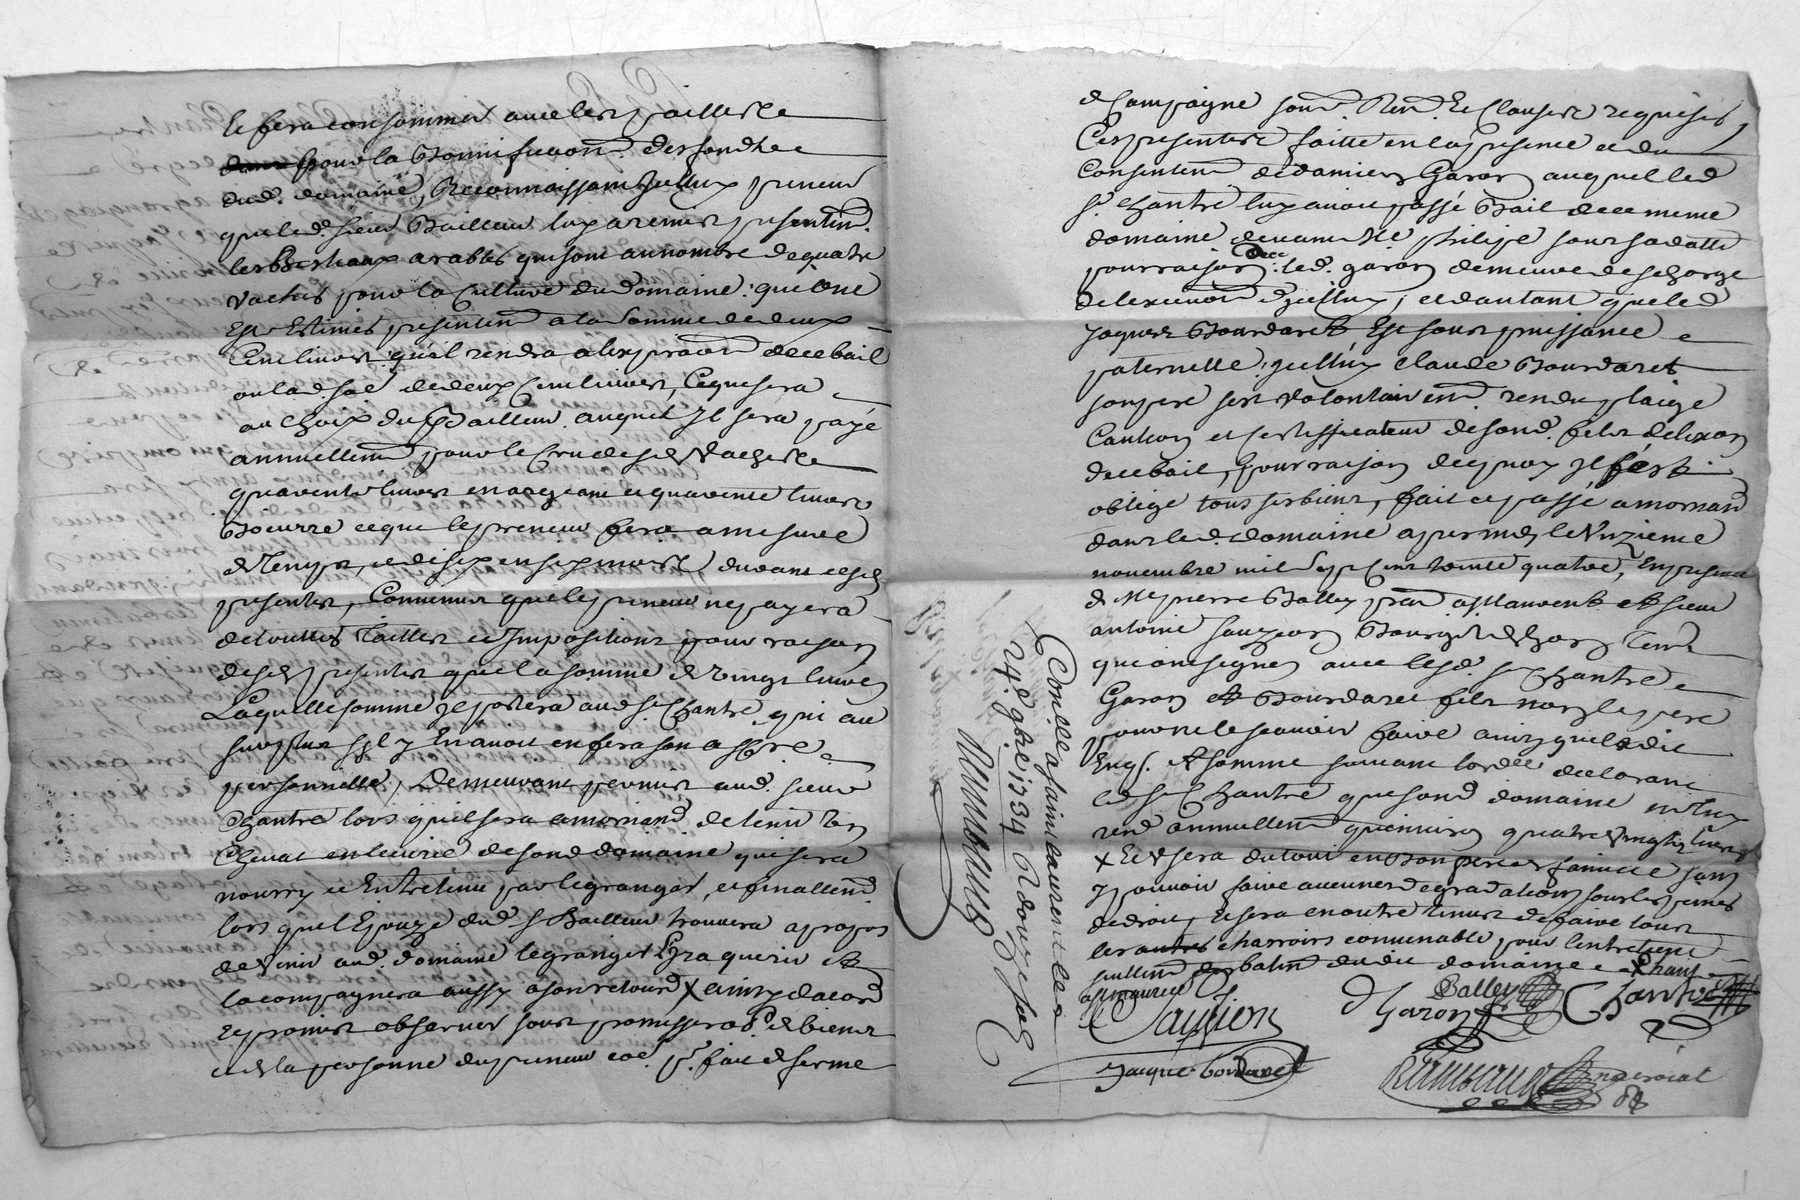 et fera consommer avec les pailles de
dans pour la bonnification des fonds de
dud. domaine, Reconnoissant icelluy preneur
que led. sieur Bailleur luy a remis presentem.
les Bestiaux arables qui sont au nombre de quatre
vaches pour la Culture dud domaine qui ont
Esté Estimés presentem a la somme de deux
Cent livres qu'il rendra a lexpiraon de ce bail
ou lad. sôe de deux Cent livres, Ce qui sera
au choix dud Bailleur auquel Il sera payé
annuellem pour le Cru desd vaches
quarente livres en argeant et quarente livres
Boeurre ce que le preneur fera a mesure
de temps, et de six en six mois durant cesd
presentes, Convenus que le preneur ne payera
de touttes tailles et Impositions pour raison
desd presentes que la somme de vingt livres
Laquelle somme Il portera aud Sr Chantre qui au
surplus s'il y En avoit en fera son affre
personnelle, Demeurant permis aud. sieur
Chantre lors qu'il sera a mornand de tenir un
Cheval en lecurie de sond domaine qui sera
nourry et Entretenu par le granger, et finallem
lors que l'Epouze dud Sr Bailleur trouvera apropos
de venir aud. domaine le granger L'yra querir et
lacompagnera aussy a son retour X ainsy dacord
et promis observer sous promissâo de biens
et de la personne du preneur côe pr. fait de ferme
de Campagne soum. Ren. et Clauses requises
Ces presentes faitte en la presence et du
Consentem de damien Garon auquel led
Sr. Chantre luy avoit passé Bail de ce meme
domaine devant Me philipe sous sa datte
pour raison de ce led. garon demeure descharge
de lexecuon dicelluy, et dautant que led
Jaques Bourdaret Est sous puissance
paternelle, icelluy Claude Bourdaret
son pere sest volontairem rendu plaige
Caution et sertifficateur de sond. fils delexon
de ce bail, pour raison de quoy Il sest
obligé tous ses biens, fait et passé a mornand
dans led. domaine apres midy le Unzieme
novembre mil sept cent trente quatre, En presence
de Me pierre Balley et sieur
antoine Bourgeois tem
qui ont signé avec lesd. Sr Chantre
Garon et Bourdaret fils non le pere
pour ne le scavoir faire ainsy qu'il a dit
Enq. et sommé suivant lord declarant
led Sr Chantre que sond domaine
rend annuellem quatre vingts livres
X Et usera du tout en Bon pere de famille sans
y pouvoir faire aucunes degradations sous les peines
de droit, et sera en outre tenus de faire tous
les autres charroirs convenable pour lentretient
seullem des batim dudit domaine Chant
Balley Chantre
D Garon
jaque bordaret
Rambaud no roial
Con.llé a saint laurent le
24e 9bre 1734 R douze sols
Rambaud